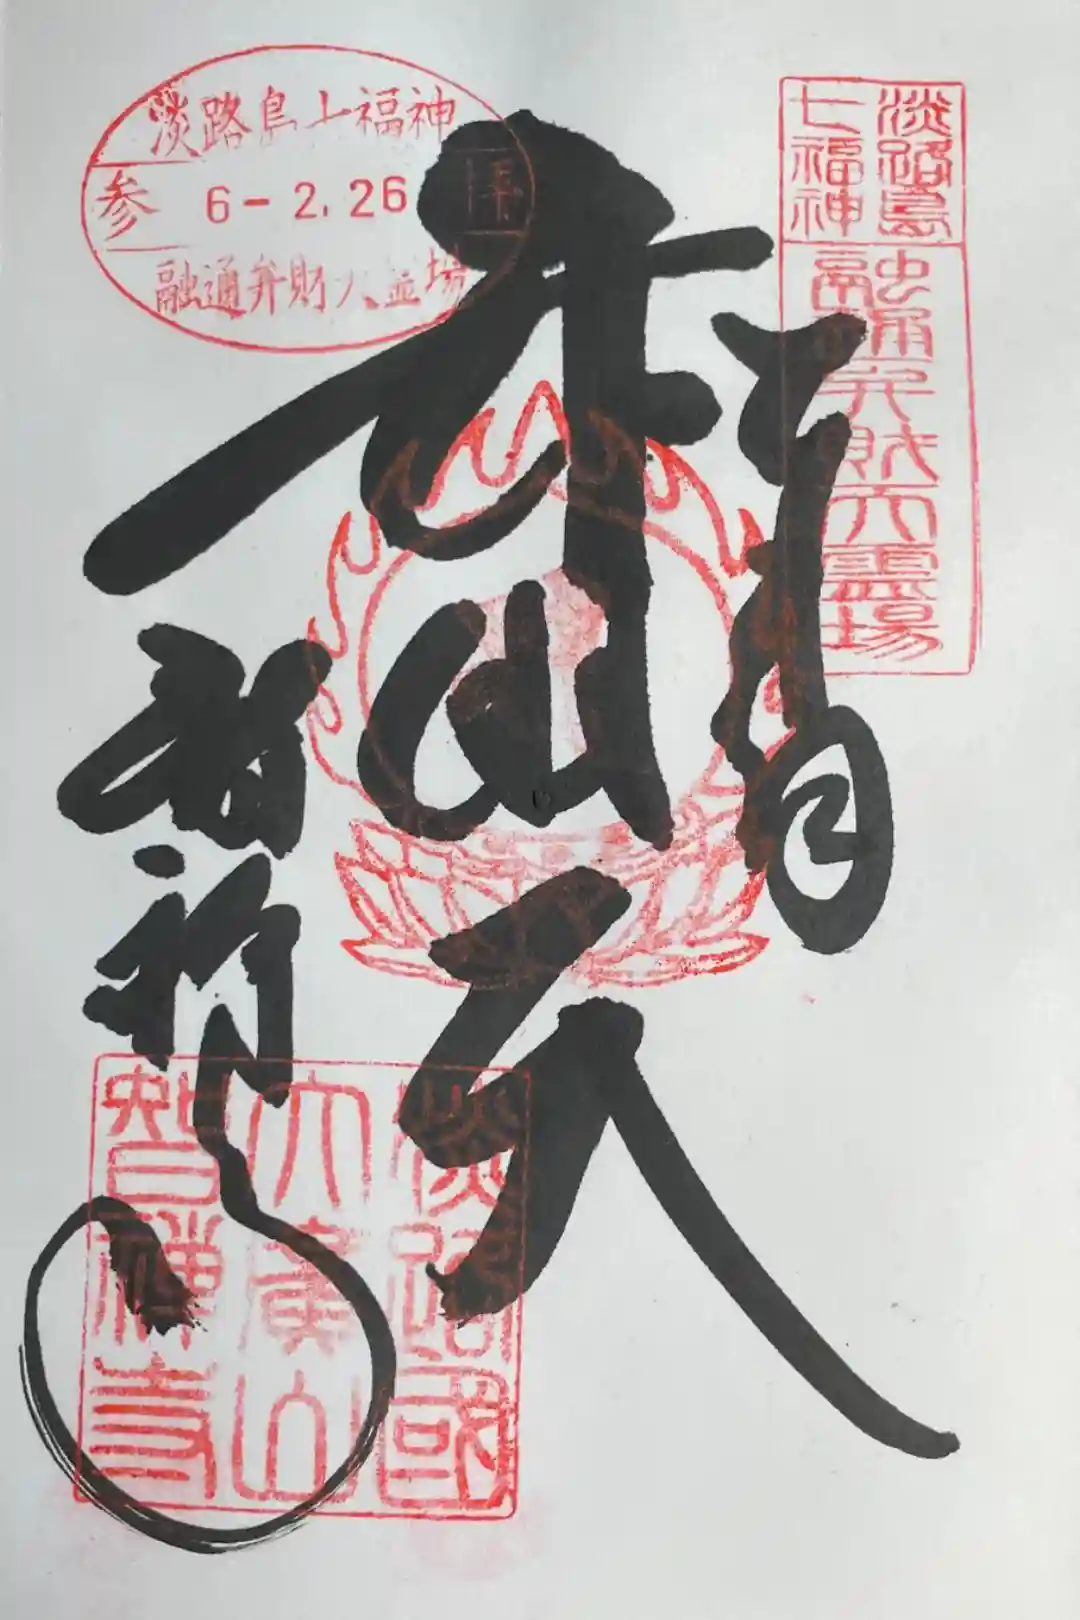 淡路島七福神
参 6-2.26 拝
融通弁財天霊場
淡路島
七福神
融通弁財天霊場
智禅寺
淡路國
大廣山
智禅寺